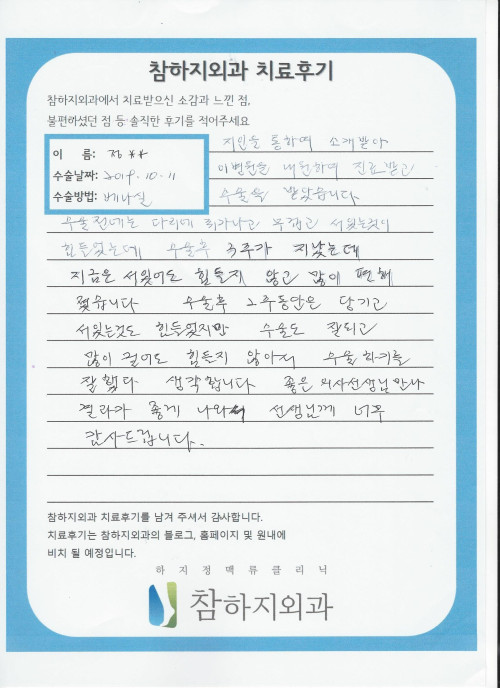 참하지외과 치료후기
참하지외과에서 치료받으신 소감과 느낀 점,
불편하셨던 점 등·솔직한 후기를 적어주세요
이 름: 정**
수술날짜: 2019.10.11
수술방법: 베나실
지인을 통하여 소개받아
이병원을 내원하여 진료받고
수술을 받았습니다
수술전에는 다리에 쥐가나고 무겁고 서있는것이
힘들었는데 수술후 3주가 지났는데
지금은 서있어도 힘들지 않고 많이 편해
졌습니다 수술후 2주동안은 당기고
서있는것도 힘들었지만 수술도 잘되고
많이 걸어도 힘든지 않아서 수술하기를
잘했다 생각합니다 좋은 의사선생님 만나
결과가 좋게 나와서 선생님께 너무
감사드립니다.
참하지외과 치료후기를 남겨 주셔서 감사합니다.
치료후기는 참하지외과의 블로그, 홈페이지 및 원내에
비치 될 예정입니다.
하지정맥류클리닉
참하지외과